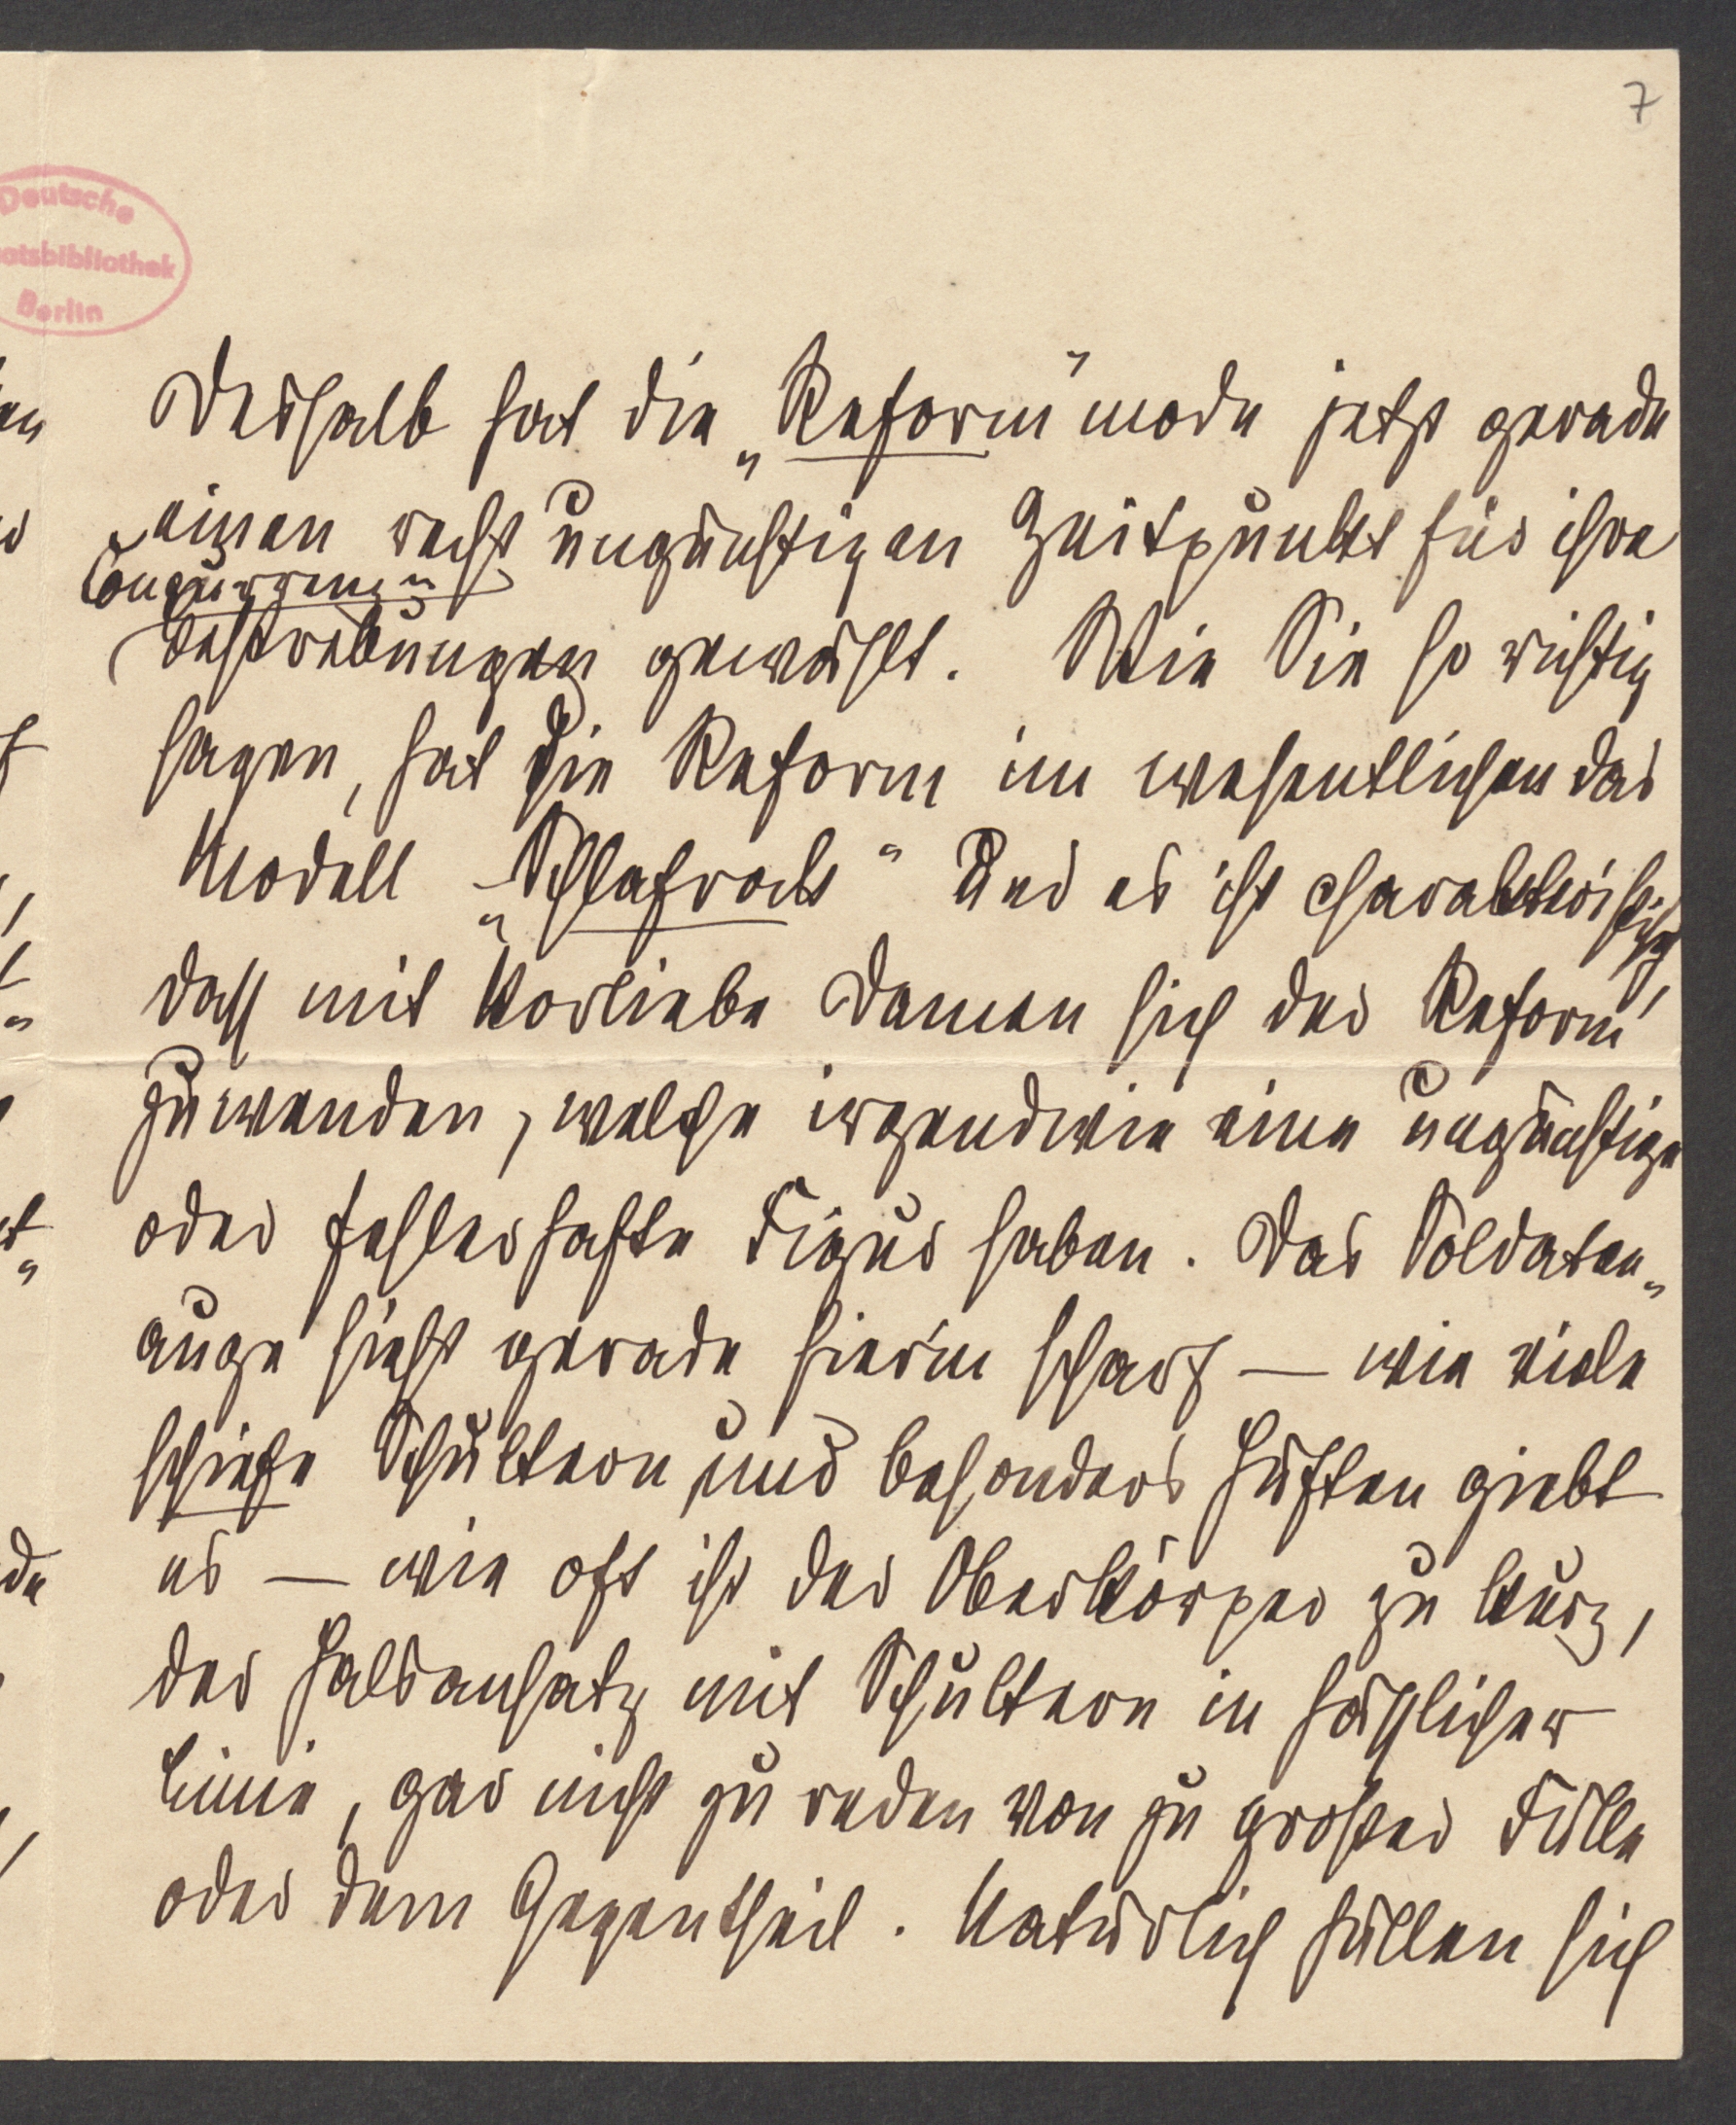 7
Deutsche
atsbibliothek
Berlin
Deshalb hat die „Reform“mode jetzt gerade
einen recht ungünstigen Zeitpunkt für ihre
Conqurrenz-
bestrebungen gewählt. Wie Sie so richtig
sagen, hat die Reform im wesentlichen das
Modell „Schlafrock“ Und es ist charakteristisch,
dass mit Vorliebe Damen sich der Reform
zuwenden, welche irgendwie eine ungünstige
oder fehlerhafte Figur haben. Das Soldaten-
auge sieht gerade hierin scharf — wie viele
schiefe Schultern und besonders Hüften giebt
es — wie oft ist der Oberkörper zu kurz,
der Halsansatz mit Schultern in hässlicher
Linie, gar nicht zu reden von zu großer Fülle
oder dem Gegentheil. Natürlich füllen sich